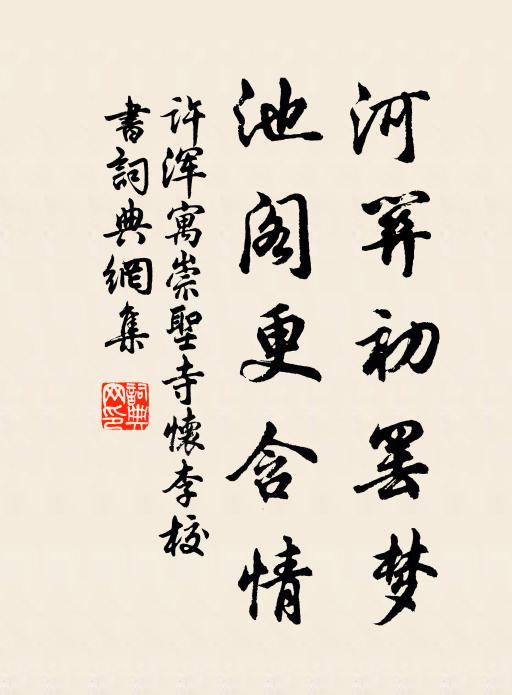 河关初罢梦
池阁更含情
许浑寓崇聖寺懷李校
書詞典網集
詞典
网印